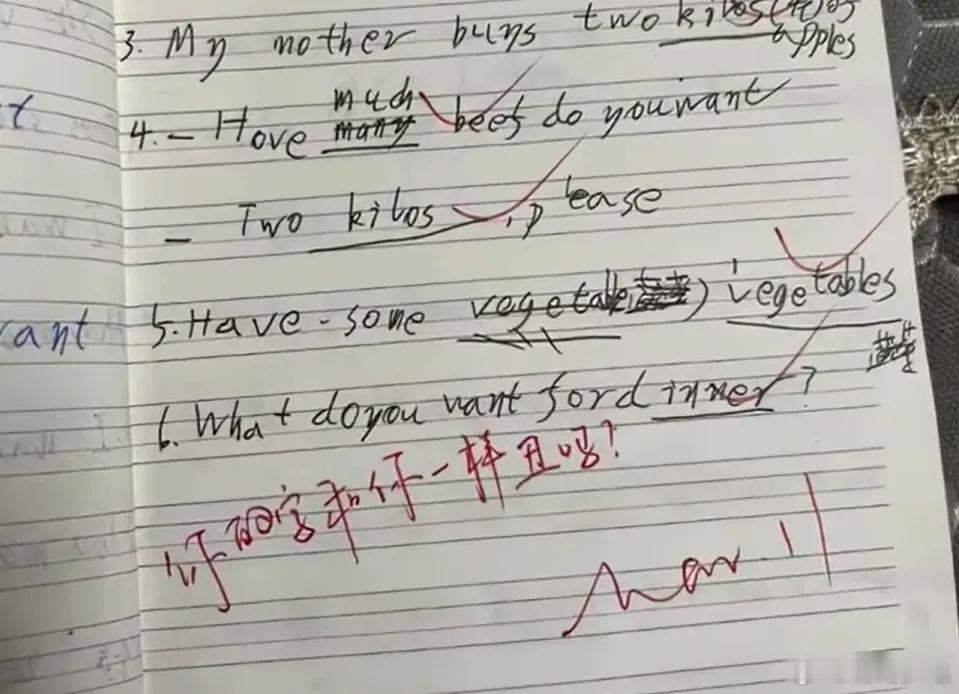 3. My nother buys two kilos of
apples
much
4. - Hove many beef do you want
- Two kilos, please
5. Have some vegetable) vegetables
6. What do you want for dinner?
你的字和你一样丑吗?
Nov. 11
ant